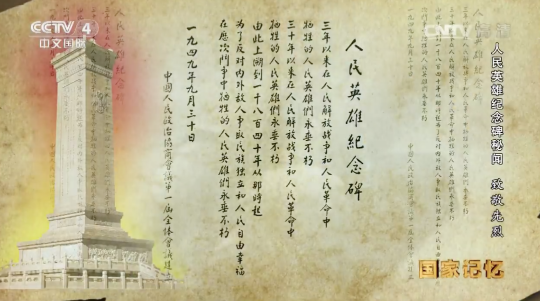 CCTV 4
中文国际
人民英雄纪念碑秘闻 致敬先烈
人民英雄紀念碑
三年以来在人民解放战争和人民革命中
牺牲的人民英雄們永垂不朽
三十年以来在人民解放战争和人民革命中
牺牲的人民英雄們永垂不朽
由此上溯到一千八百四十年从那時起
为了反对内外敌人争取民族独立和人民自由幸福
在历次鬥争中牺牲的人民英雄們永垂不朽
一九四九年九月三十日
中國人民政治協商會議第一届全体會議建立
国家记忆